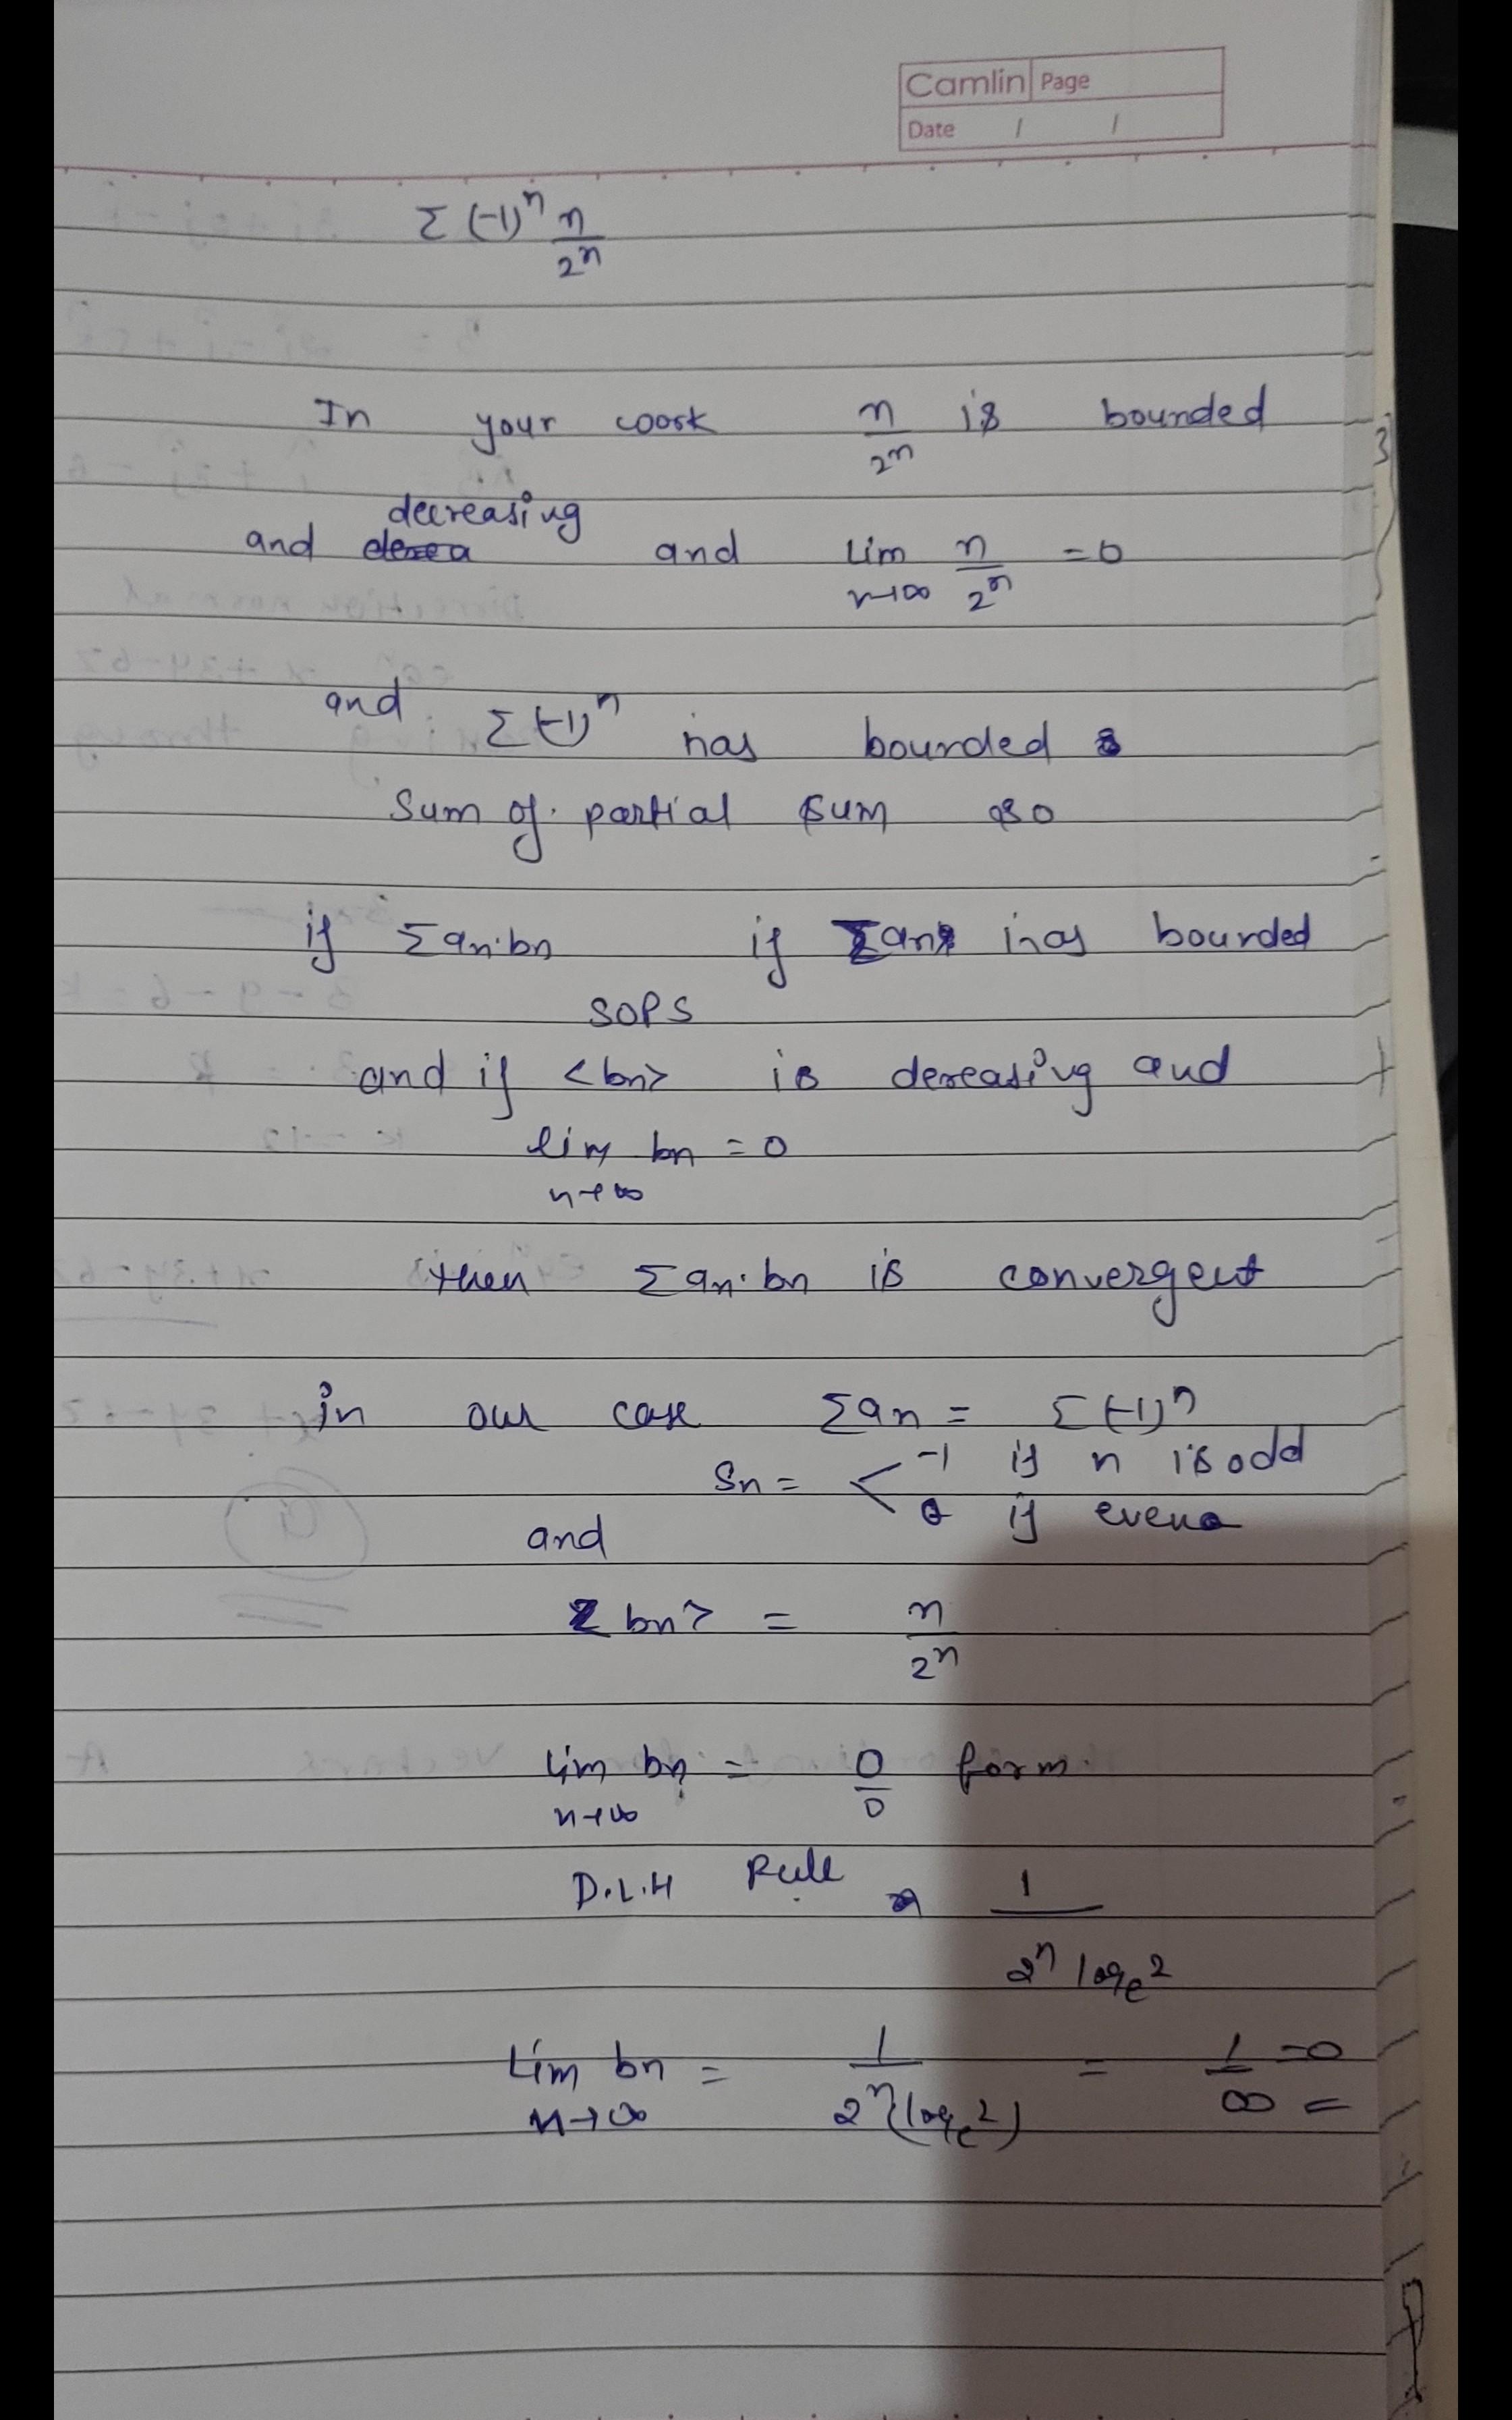 Camlin Page
Date / /
Σ (-1)ⁿ n/2ⁿ
In your work n/2ⁿ is bounded
decreasing
and and lim n→∞ n/2ⁿ = 0
and Σ(-1)ⁿ has bounded
Sum of partial sum so
if Σan·bn if Σan has bounded
SOPS
and if <bn> is decreasing and
lim n→∞ bn = 0
then Σan·bn is convergent
in our case Σan = Σ(-1)ⁿ
Sn = < -1 if n is odd
0 if even
and
<bn> = n/2ⁿ
lim n→∞ bn = 0/0 form.
D.L.H Rule 1/2ⁿ logₑ2
Lim n→∞ bn = 1/2ⁿ(logₑ2) = 1/∞ = 0